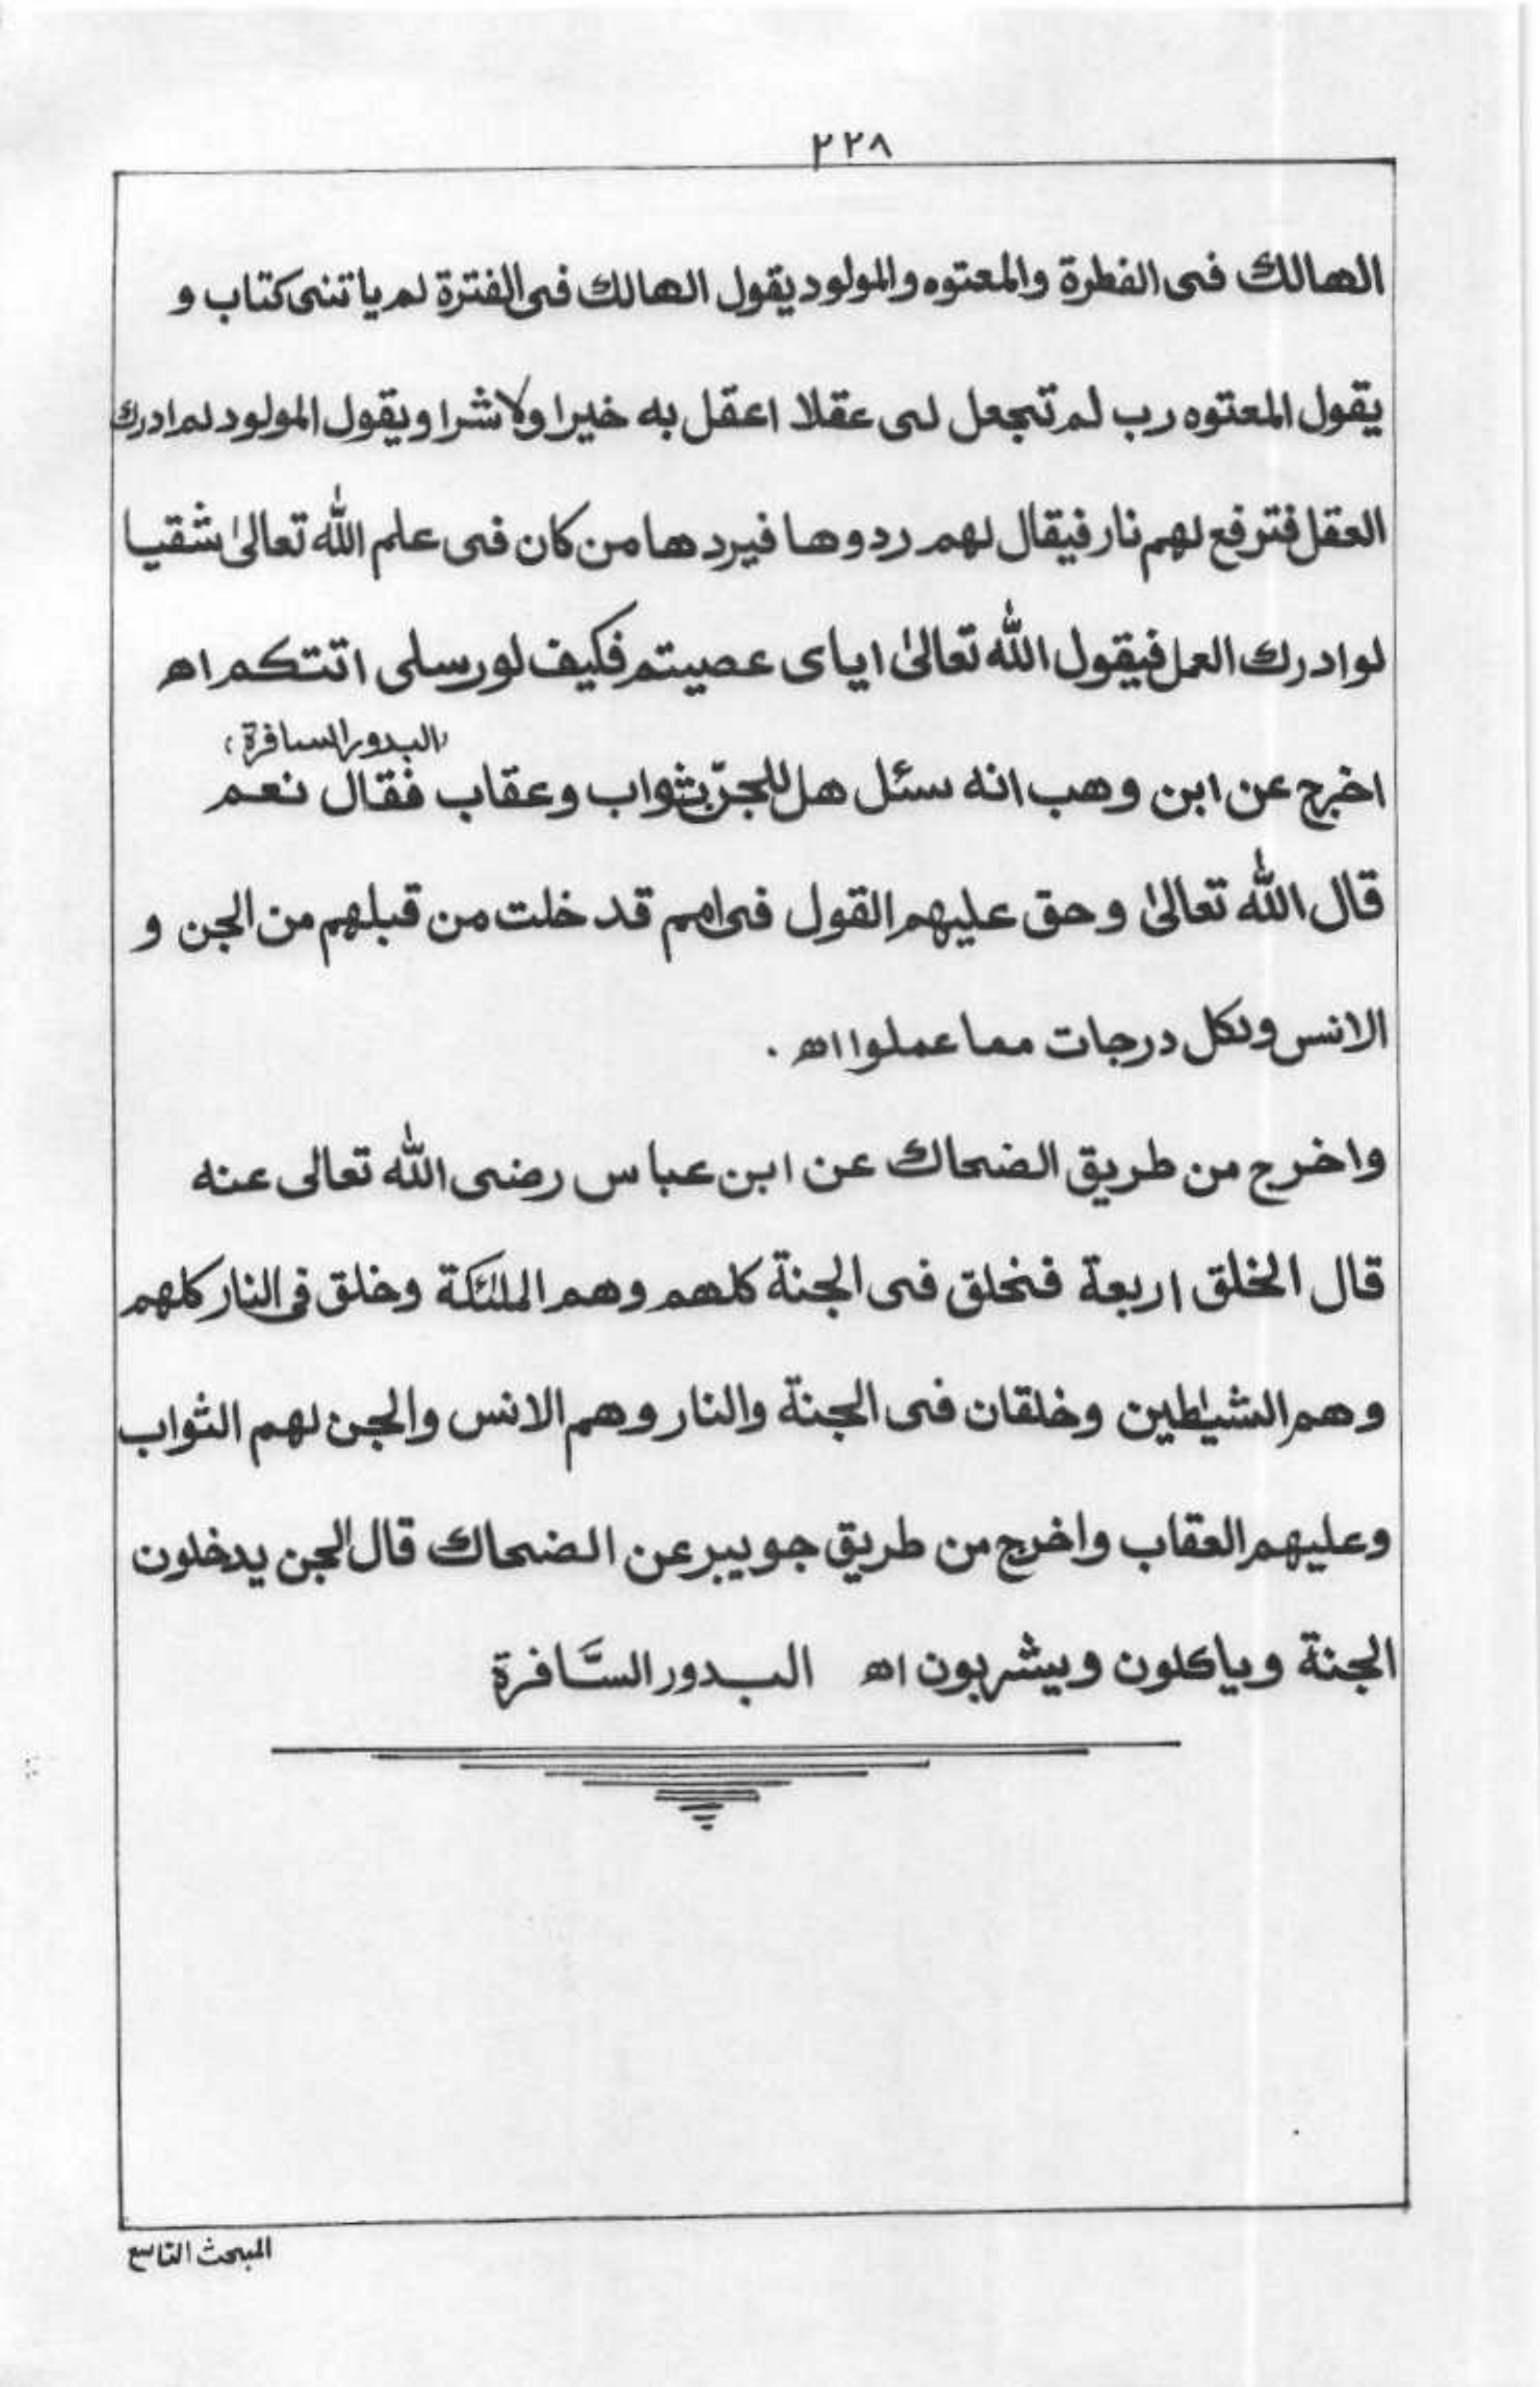 ٢٢٨
الهالك فى الفطرة والمعتوه والمولود يقول الهالك فى الفترة لم ياتنى كتاب و
يقول المعتوه رب لم تجعل لى عقلا اعقل به خيرا ولا شرا ويقول المولود لم ادرك
العقل فترفع لهم نار فيقال لهم ردوها فيردها من كان فى علم الله تعالىٰ شقيا
لو ادرك العمل فيقول الله تعالىٰ اياى عصيتم فكيف لو رسلى اتتكم اھ
(البدور السافرة)
اخرج عن ابن وهب انه سئل هل للجن ثواب وعقاب فقال نعم
قال الله تعالىٰ وحق عليهم القول فى امم قد خلت من قبلهم من الجن و
الانس ولكل درجات مما عملوا اھ .
واخرج من طريق الضحاك عن ابن عباس رضى الله تعالى عنه
قال الخلق اربعة فخلق فى الجنة كلهم وهم الملئكة وخلق فى النار كلهم
وهم الشيٰطين وخلقان فى الجنة والنار وهم الانس والجن لهم الثواب
وعليهم العقاب واخرج من طريق جويبر عن الضحاك قال الجن يدخلون
الجنة وياكلون ويشربون اھ البدور السَّافرة
المبحث التاسع